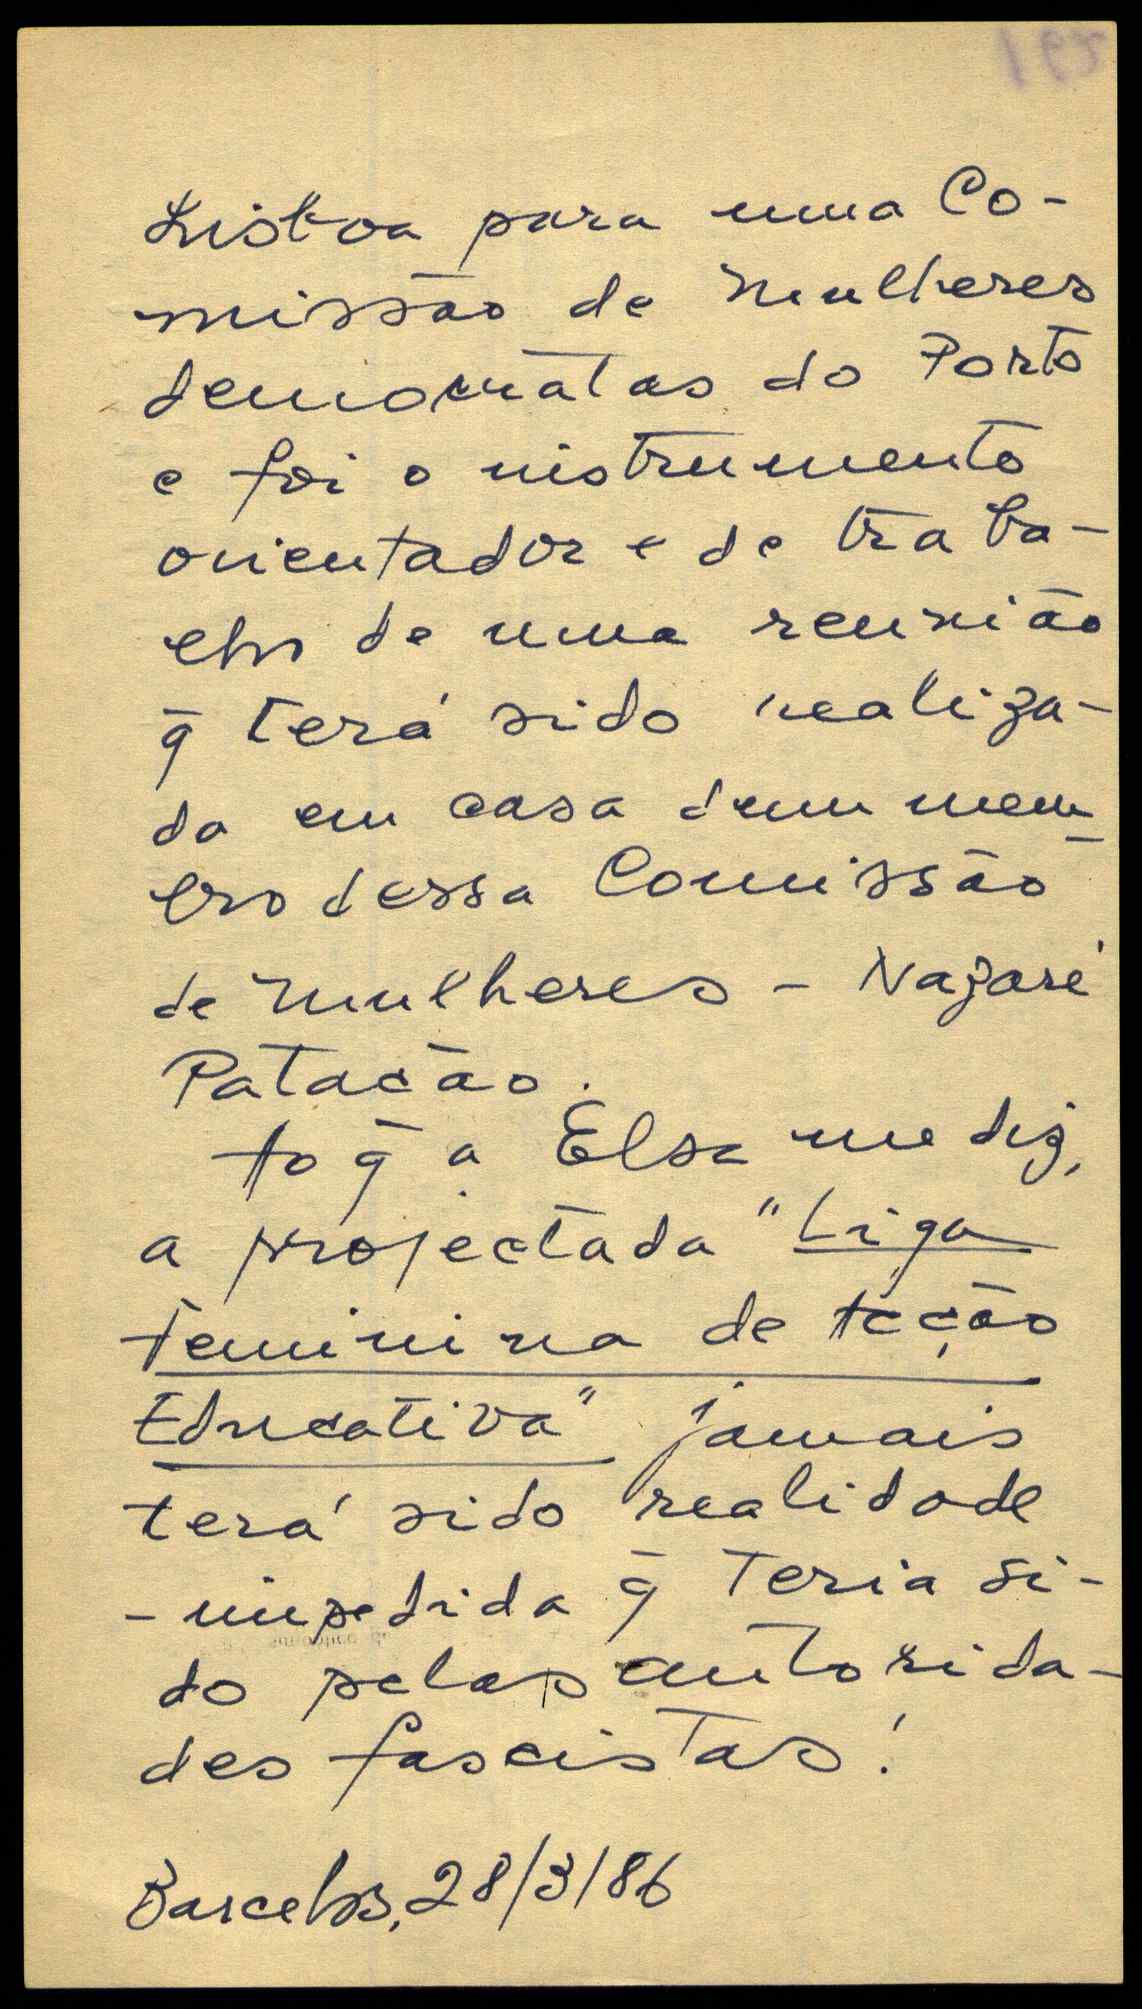 Lisboa para uma Co-
missão de Mulheres
democratas do Porto
e foi o instrumento
orientador e de traba-
lho de uma reunião
q̄ terá sido realiza-
da em casa dum mem-
bro dessa Comissão
de Mulheres - Nazaré
Patacão.
to q̄ a Elsa me diz,
a projectada "Liga
Feminina de Acção
Educativa" jamais
terá sido realidade
- impedida q̄ teria si-
do pelas autorida-
des fascistas!
Barcelos, 28/3/86